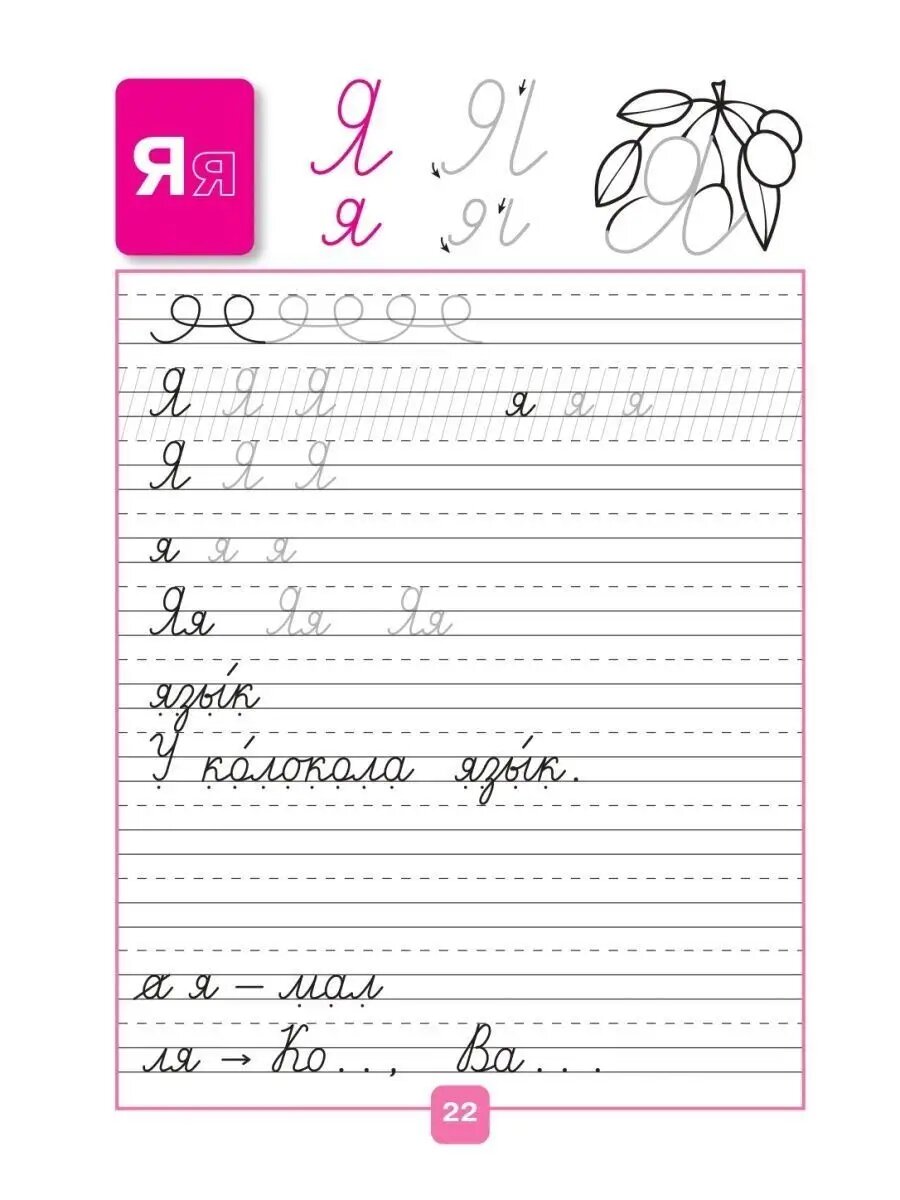 Яя Я Я
я я
Я Я Я я я я
Я Я Я
я я я
Яя Яя Яя
язы́к
У ко́локола язы́к.
а я — мал
ля → Ко . . , Ва . . .
22